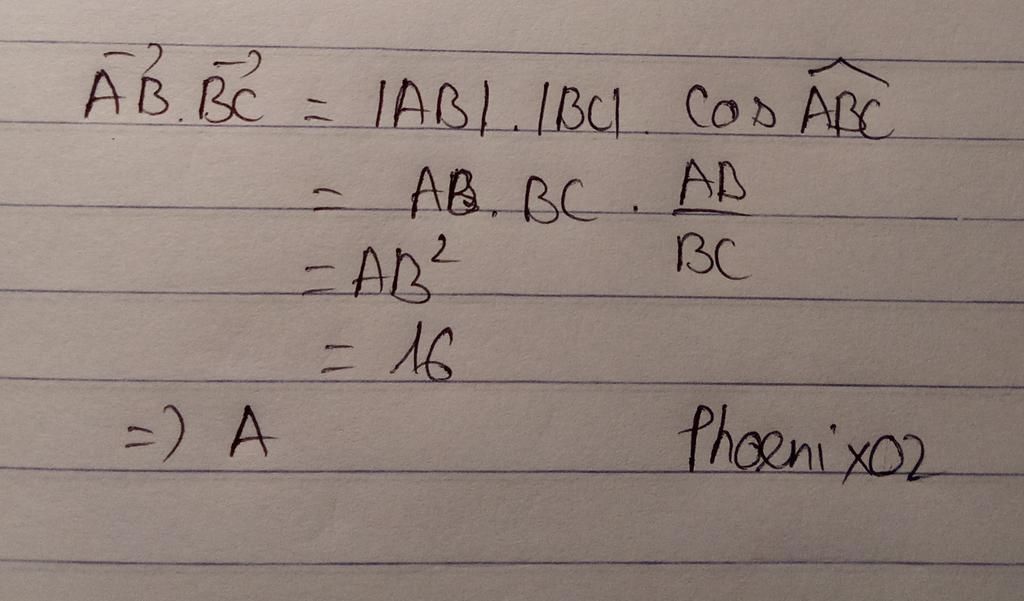 $\overrightarrow{AB}.\overrightarrow{BC} = |AB|.|BC|. \cos \widehat{ABC}$
$= AB.BC.\frac{AB}{BC}$
$= AB^2$
$= 16$
=) A
Phoenix02